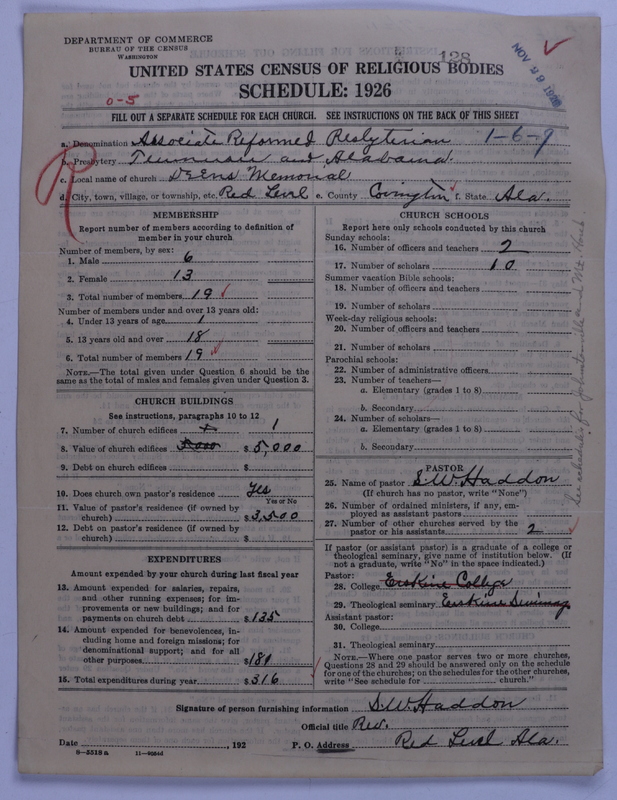 DEPARTMENT OF COMMERCE
BUREAU OF THE CENSUS
WASHINGTON
128
NOV 29 1926
UNITED STATES CENSUS OF RELIGIOUS BODIES
SCHEDULE: 1926
0-5
FILL OUT A SEPARATE SCHEDULE FOR EACH CHURCH. SEE INSTRUCTIONS ON THE BACK OF THIS SHEET
a. Denomination Associate Reformed Presbyterian 1-6-9
b. Presbytery Tennessee and Alabama.
c. Local name of church DeEns Memorial
d. City, town, village, or township, etc. Red Level e. County Covington f. State Ala.
R
MEMBERSHIP
Report number of members according to definition of
member in your church
Number of members, by sex:
1. Male 6
2. Female 13
3. Total number of members 19
Number of members under and over 13 years old:
4. Under 13 years of age 1
5. 13 years old and over 18
6. Total number of members 19
NOTE.—The total given under Question 6 should be the
same as the total of males and females given under Question 3.
CHURCH BUILDINGS
See instructions, paragraphs 10 to 12
7. Number of church edifices 1
8. Value of church edifices $ 5,000
9. Debt on church edifices $
10. Does church own pastor's residence Yes
Yes or No
11. Value of pastor's residence (if owned by
church) $ 3,500
12. Debt on pastor's residence (if owned by
church) $
EXPENDITURES
Amount expended by your church during last fiscal year
13. Amount expended for salaries, repairs,
and other running expenses; for im-
provements or new buildings; and for
payments on church debt $ 135
14. Amount expended for benevolences, in-
cluding home and foreign missions; for
denominational support; and for all
other purposes $ 181
15. Total expenditures during year $ 316
CHURCH SCHOOLS
Report here only schools conducted by this church
Sunday schools:
16. Number of officers and teachers 2
17. Number of scholars 10
Summer vacation Bible schools:
18. Number of officers and teachers
19. Number of scholars
Week-day religious schools:
20. Number of officers and teachers
21. Number of scholars
Parochial schools:
22. Number of administrative officers
23. Number of teachers—
a. Elementary (grades 1 to 8)
b. Secondary
24. Number of scholars—
a. Elementary (grades 1 to 8)
b. Secondary
PASTOR
25. Name of pastor S.W. Haddon
(If church has no pastor, write "None")
26. Number of ordained ministers, if any, em-
ployed as assistant pastors
27. Number of other churches served by the
pastor or his assistants 2
If pastor (or assistant pastor) is a graduate of a college or
theological seminary, give name of institution below. (If
not a graduate, write "No" in the space indicated.)
Pastor:
28. College Erskine College
29. Theological seminary Erskine Seminary
Assistant pastor:
30. College
31. Theological seminary
NOTE.—Where one pastor serves two or more churches,
Questions 28 and 29 should be answered only on the schedule
for one of the churches; on the schedules for the other churches,
write "See schedule for church."
See schedules for
Signature of person furnishing information S.W. Haddon
Official title Rev.
Date , 192 P. O. Address Red Level Ala.
8—5518 a